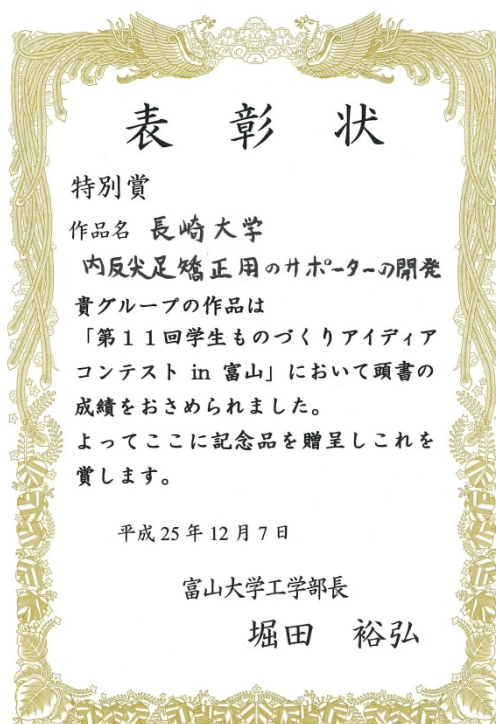 表彰状
特別賞
作品名 長崎大学
内反尖足矯正用のサポーターの開発
貴グループの作品は
「第11回学生ものづくりアイディア
コンテスト in 富山」において頭書の
成績をおさめられました。
よってここに記念品を贈呈しこれを
賞します。
平成25年12月7日
富山大学工学部長
堀田 裕弘